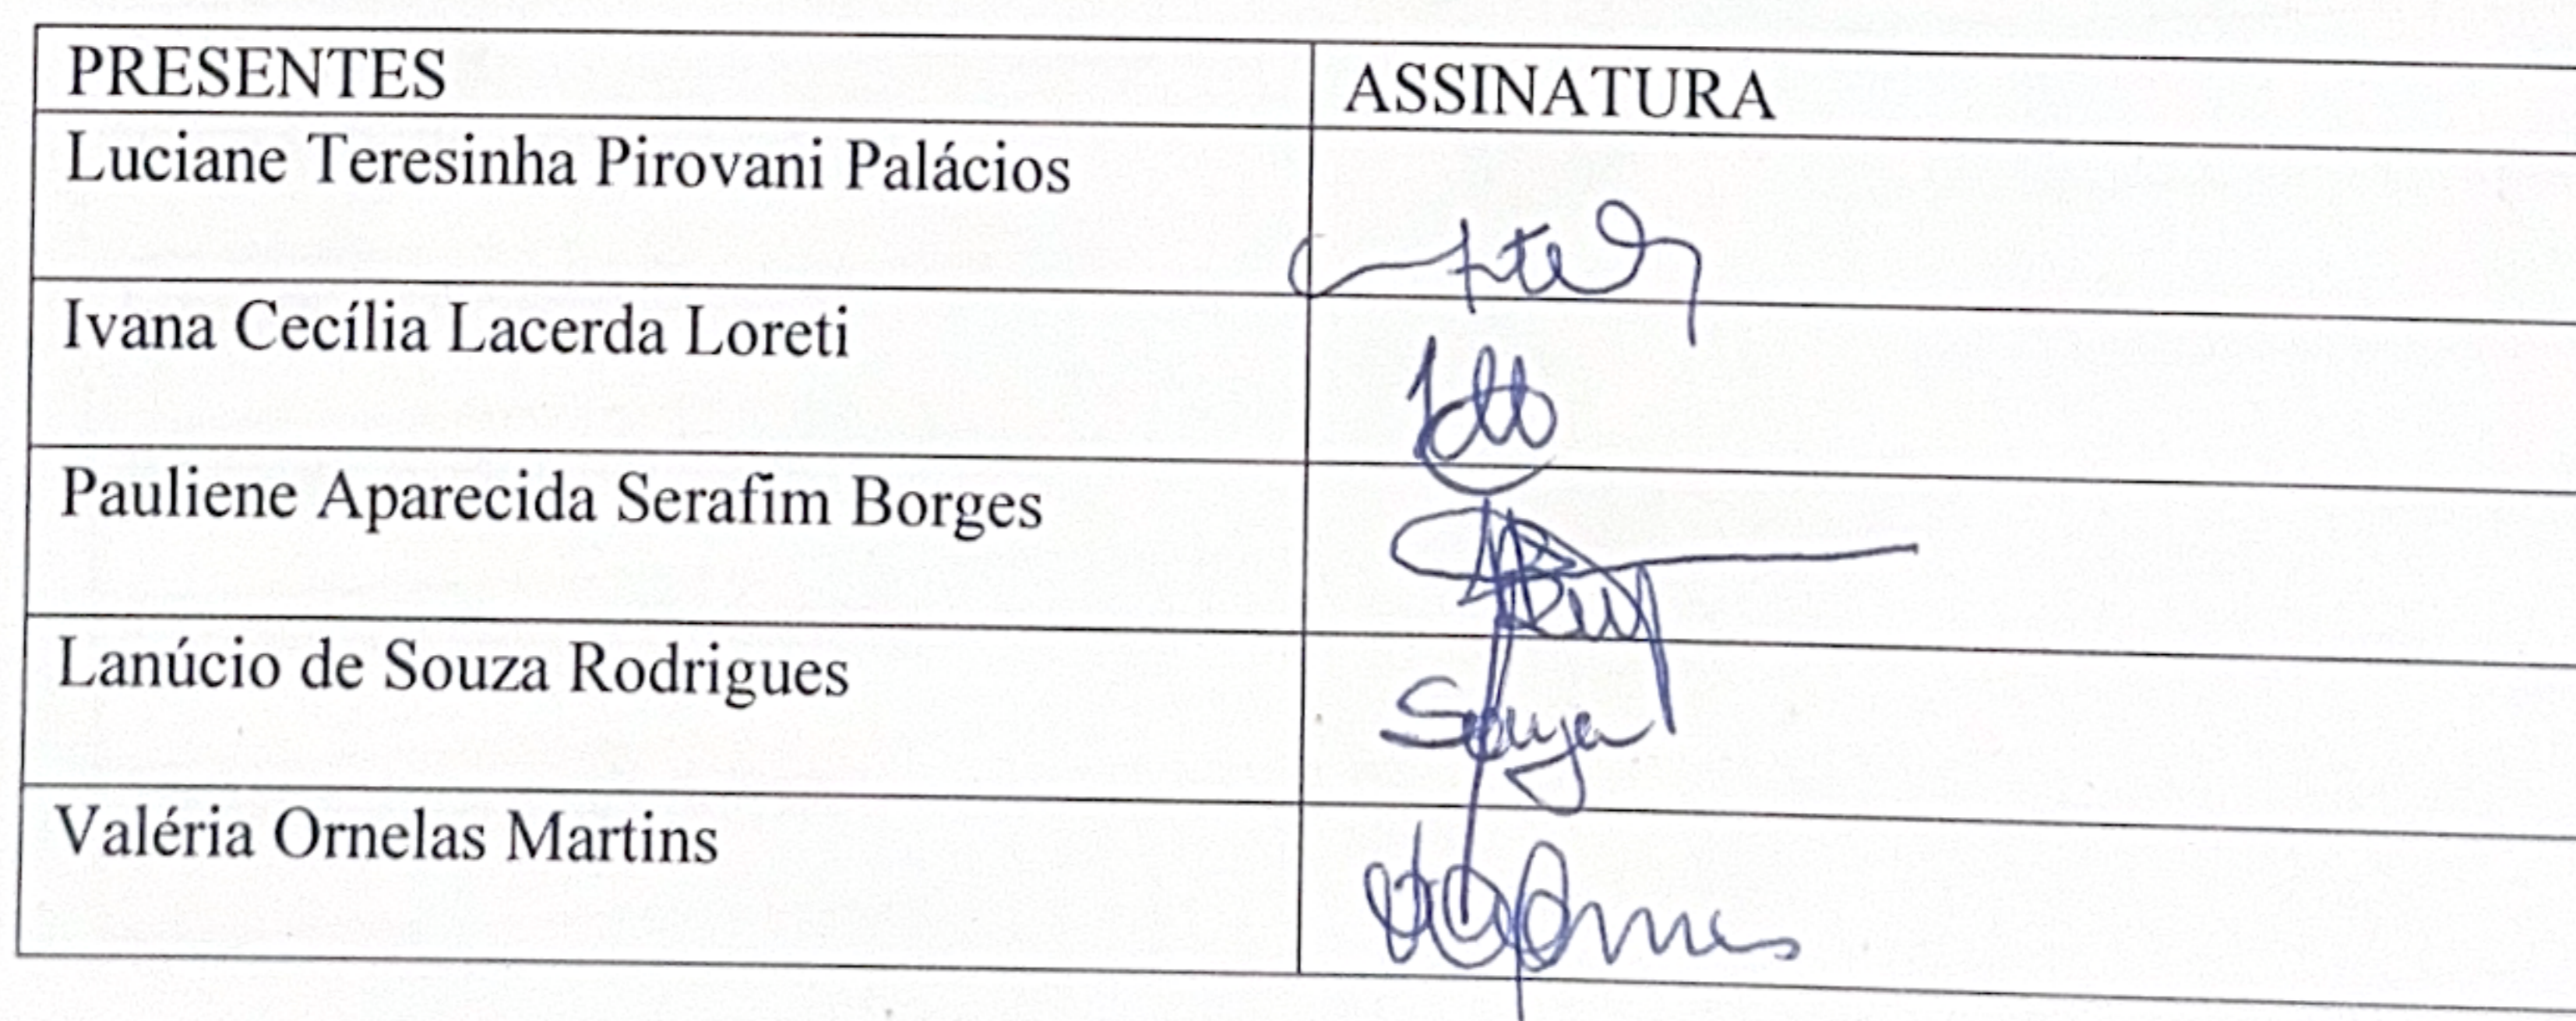 PRESENTES
ASSINATURA
Luciane Teresinha Pirovani Palácios
Ivana Cecília Lacerda Loreti
Pauliene Aparecida Serafim Borges
Lanúcio de Souza Rodrigues
Souza
Valéria Ornelas Martins